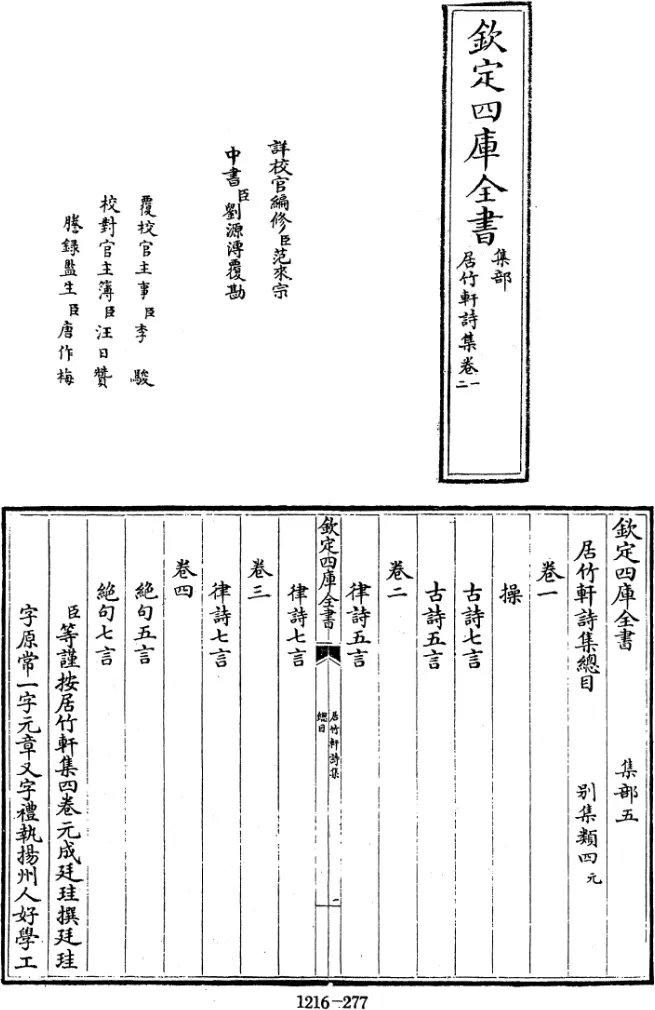 欽定四庫全書
集部
居竹軒詩集卷一
二
詳校官編修臣范來宗
中書臣劉源溥覆勘
覆校官主事臣李駿
校對官主簿臣汪日贊
謄錄監生臣唐作梅
欽定四庫全書 集部五
居竹軒詩集總目 别集類四元
卷一
操
古詩七言
古詩五言
卷二
律詩五言
欽定四庫全書
居竹軒詩集
總目
一
律詩七言
卷三
律詩七言
卷四
絶句五言
絶句七言
臣等謹按居竹軒集四卷元成廷珪撰廷珪
字原常一字元章又字禮執揚州人好學工
1216-277